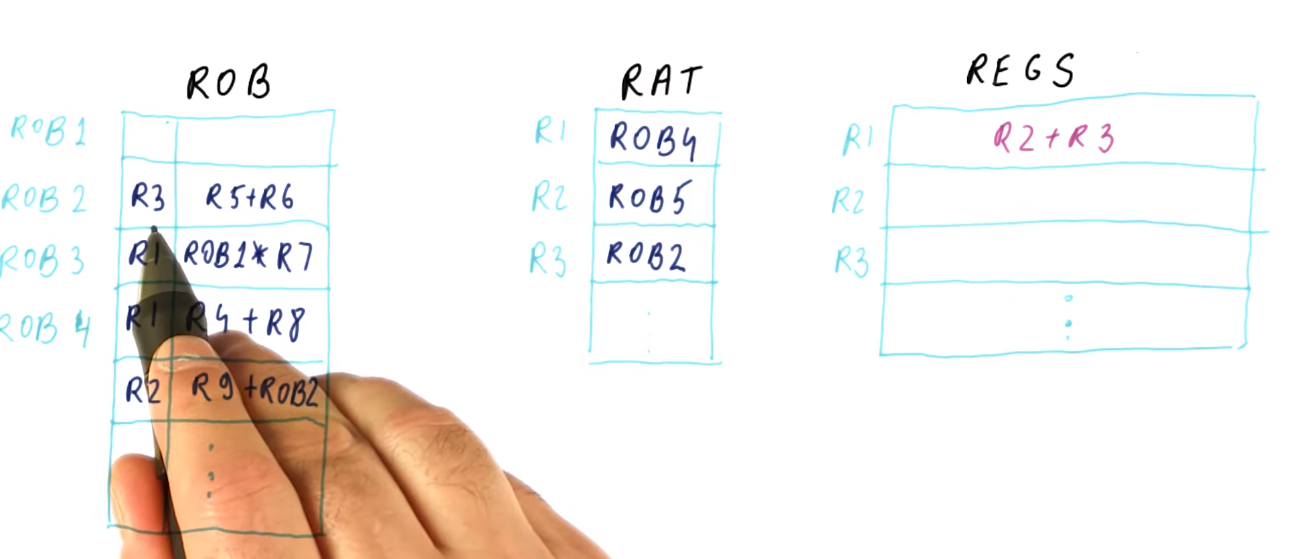 ROB
ROB 1
ROB 2 R3 R5+R6
ROB 3 R1 ROB1* R7
ROB 4 R1 R4 + R8
R2 R9 +ROB2
RAT
R1 ROB4
R2 ROB5
R3 ROB2
REGS
R1 R2+R3
R2
R3